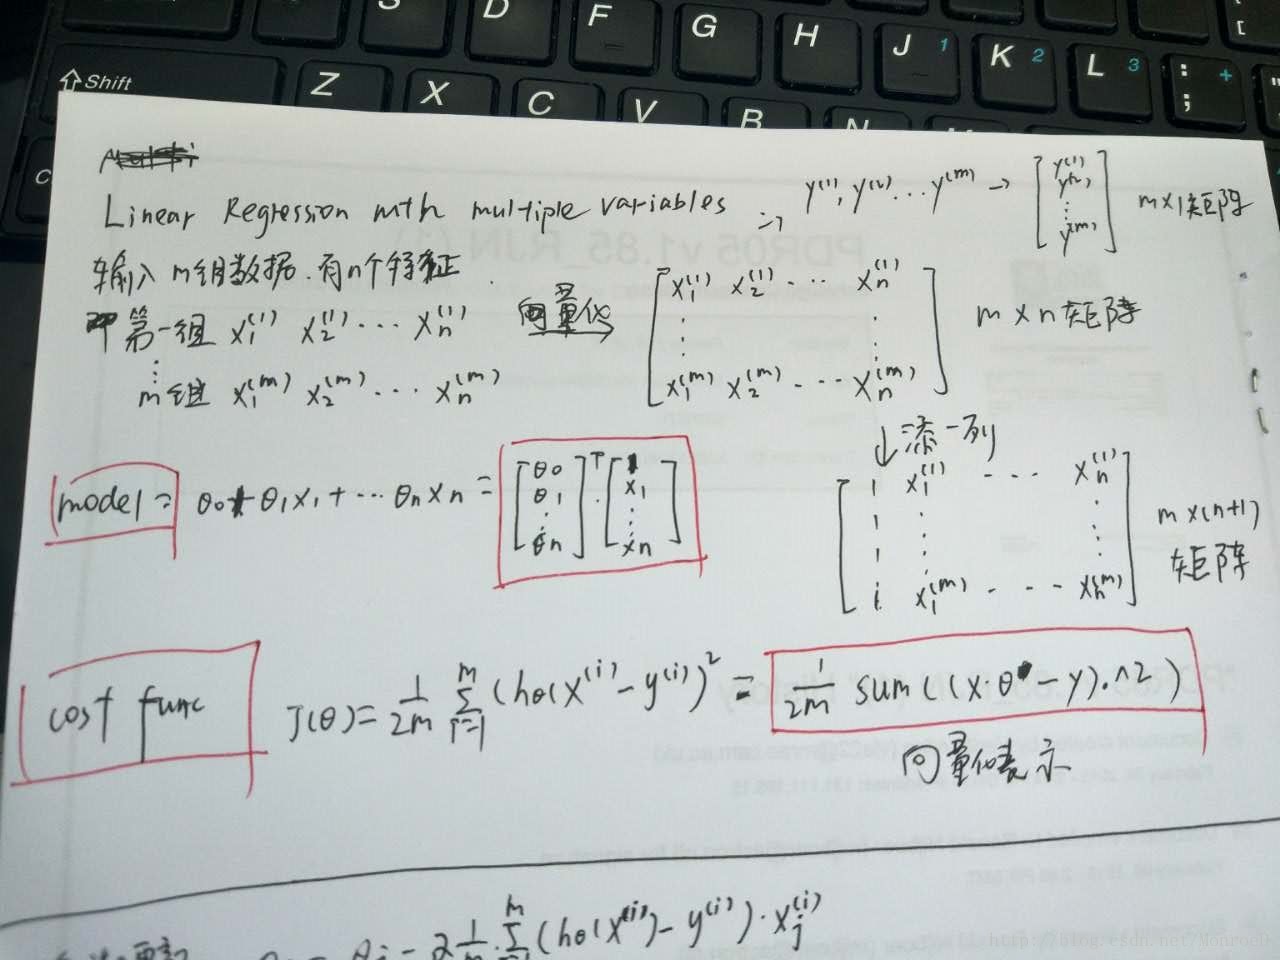 S D F G H J 1 K 2 L 3 : ; +
Shift Z X C V B N M
Linear Regression with multiple variables => y^(1), y^(2) ... y^(m) → [y^(1) y^(2) ⋮ y^(m)] m×1矩阵
输入m组数据.有n个特征
第一组 x_1^(1) x_2^(1) ... x_n^(1) 向量化 [x_1^(1) x_2^(1) ... x_n^(1)
⋮
m组 x_1^(m) x_2^(m) ... x_n^(m) x_1^(m) x_2^(m) ... x_n^(m)] m×n矩阵
↓添一列
model = θ0+θ1x1+...θnxn = [θ0 θ1 ⋮ θn]^T · [1 x1 ⋮ xn]
[1 x_1^(1) ... x_n^(1)
1 ⋮ ⋮
1 ⋮ ⋮
1 x_1^(m) ... x_n^(m)] m×(n+1)
矩阵
cost func J(θ)= 1/2m Σ_{i=1}^m (hθ(x^(i) - y^(i))^2 = 1/2m sum((X·θ - y).^2)
向量化表示
1/m Σ^m (hθ(x^(i)) - y^(i)) · x_j^(i)